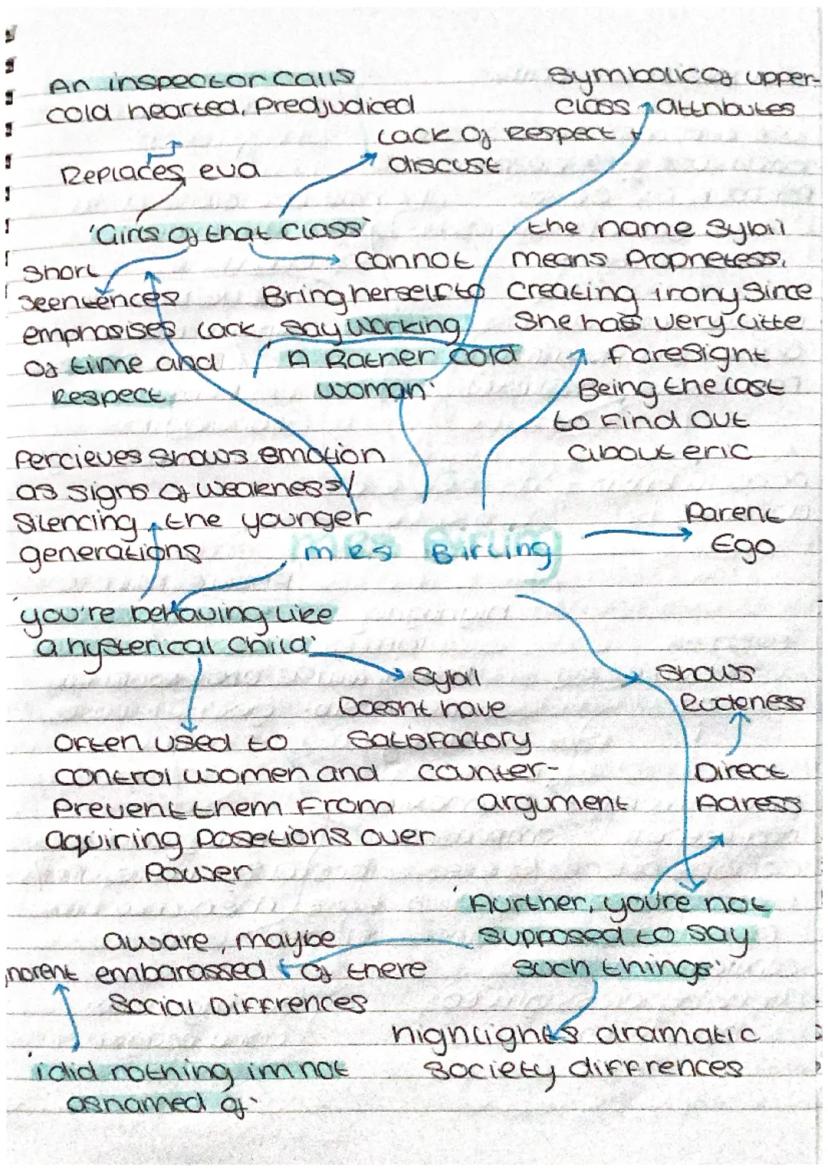 An inspector calls
cold hearted, Predjudiced
Symbolic of upper-
class attributes
Lack of Respect +
discust
Replaces eva
'Girls of that class'
Short
Seentences
emphasises lack
of time and
Respect
cannot
Bring herself to
say working
the name Sybil
means Prophetess.
Creating irony Since
She has very litte
foresight
Being the last
to find out
about eric
'A Rather cold
woman'
Percieves shows emotion
as signs of weakness/
Silencing the younger
generations
mrs Birling
Parent
Ego
'you're behaving like
a hysterical Child'
Sybil
Doesnt have
Satisfactory
counter-
argument
Shows
Rudeness
Direct
Adress
Often used to
control women and
Prevent them from
aquiring posetions over
Power
'Aurther, you're not
supposed to say
such things'
aware, maybe
embarassed of there
Social Diffrences
highlights dramatic
Society diffrences
norent
'i did nothing im not
ashamed of'